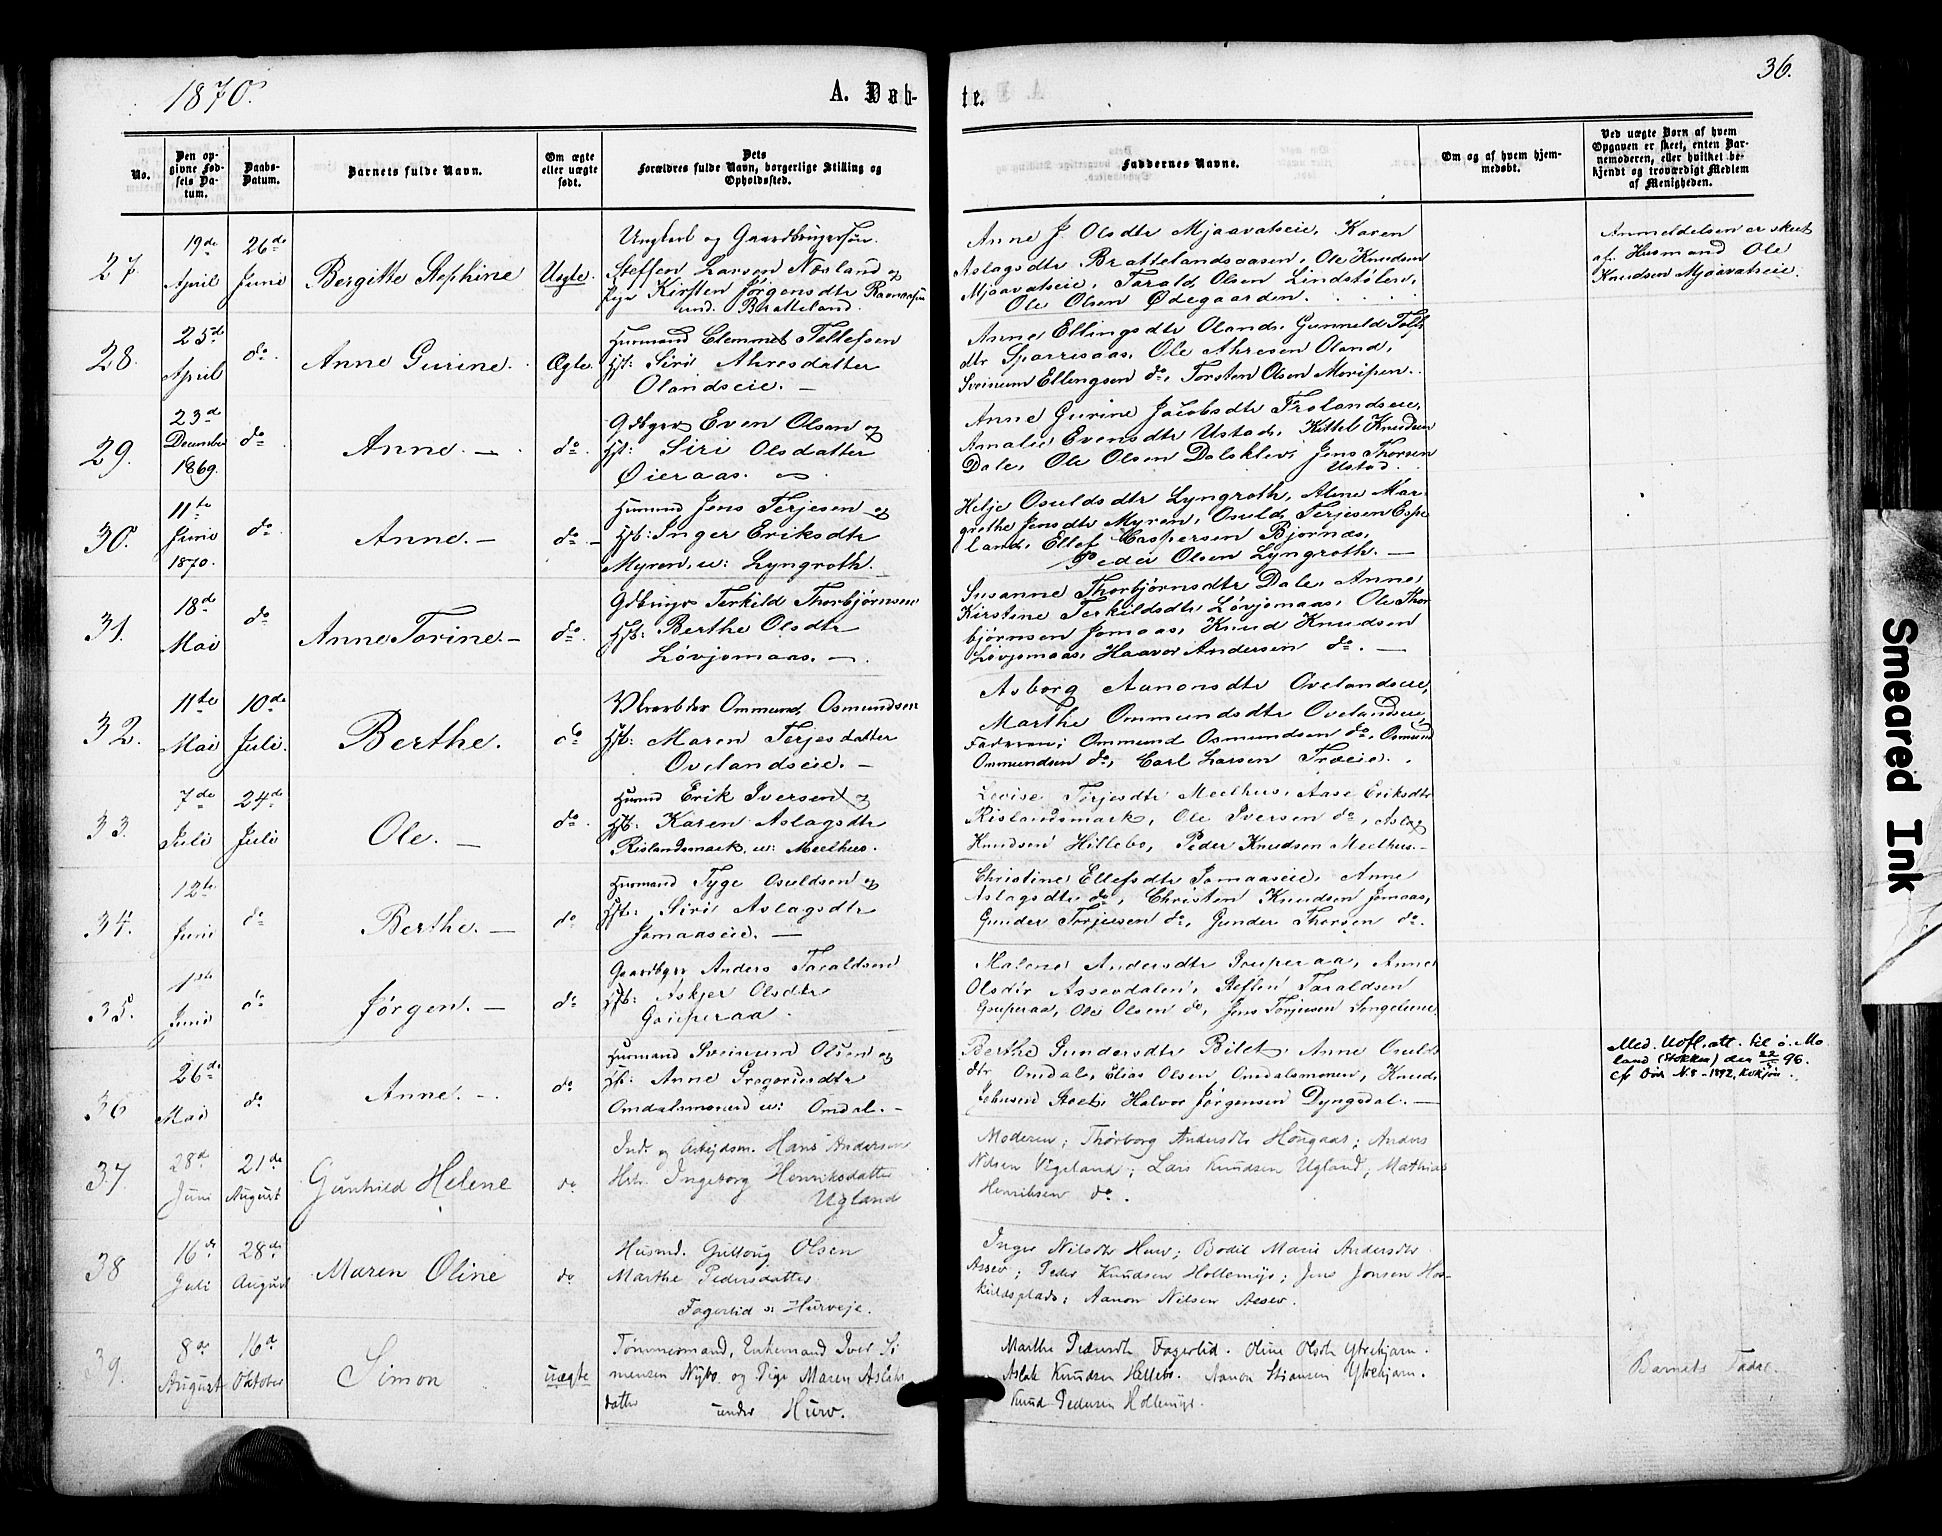 1870.
A. Døb-
te.
36.
No.
Den opgivne Fødsels Datum.
Daabs-Datum.
Barnets fulde Navn.
Om ægte eller uægte født.
Dets Forældres fulde Navn, borgerlige Stilling og Opholdssted.
Faddernes Navne.
Om og af hvem hjemmedøbt.
Ved uægte Børn af hvem Opgaven er skeet, enten Barnemoderen, eller hvilket bekjendt og troværdigt Medlem af Menigheden.
27.
19de April
26de Juni
Bergitte Stephine
Uægte.
Ungkarl og Gaardbrugersøn
Steffen Larsen Næsland og
Pige Kirsten Jørgensdtr Raamaasen
und. Bratteland.
Anne J. Olsdtr Mjaavatseie, Karen
Aslagsdtr Brattelandsaasen, Ole Knudsen
Mjaavatseie, Tarald Olsen Lindstølen,
Ole Olsen Ødegaarden.
Anmeldelsen er skeet
af Husmand Ole
Knudsen Mjaavatseie.
28.
25de April
do.
Anne Gurine.
Ægte.
Husmand Clemmet Tellefsen
Hst: Siri Ahresdatter
Olandseie. —
Anne Ellingsdtr Oland, Gunneld Tols
dtr Sparrisaas, Ole Ahresen Oland,
Sveinum Ellingsen do, Torsten Olsen Moripen.
29.
23de December 1869.
do
Anne. —
do.
Gdbger Even Olsen og
Hst: Siri Olsdatter
Øieraas.
Anne Gurine Jacobsdtr Frolandseie,
Amalie Evensdtr Ustad, Kittel Knudsen
Dale, Ole Olsen Dalsklev, Jens Thorsen
Ustad.
30.
11te Juni 1870.
do.
Anne. —
do. —
Husmnd Jens Terjesen og
Hst: Inger Eriksdtr
Myren, u: Lyngroth.
Helje Osuldsdtr Lyngroth, Aline Mar
grethe Jensdtr Myren, Osuld Terjesen Espe
land, Ellef Caspersen Bjørnaas,
Peder Olsen Lyngroth. —
31.
18de Mai
do
Anne Torine. —
do.
Gdbruger Terkild Thorbjørnsen
Hst: Berthe Olsdtr
Løvjomaas. —
Susanne Thorbjørnsdtr Dale, Anne
Kirstine Terkildsdtr Løvjomaas, Ole Thor
bjørnsen Jomaas, Knud Knudsen
Løvjomaas, Haavor Andersen do. —
32.
11te Mai
10de Juli.
Berthe.
do
Ommund Osmundsen
Hst: Maren Terjesdatter
Ovelandseie. —
Asborg Aanonsdtr Ovelandseie,
Marthe Ommundsdtr Ovelandseie,
Faderen; Ommund Osmundsen do, Osmund
Ommundsen do, Carl Larsen Træeie.
33.
7de Juli
24de Juli
Ole. —
do.
Husmd Erik Iversen og
Hst: Karen Aslagsdtr
Rislandsmark, u: Mælhus.
Lovise Terjesdtr Mælhus, Aase Eriksdtr
Rislandsmark, Ole Iversen do, Aslag
Knudsen Hillebo, Peder Knudsen Mælhus. —
34.
12te Juni
do
Berthe. —
do
Husmand Tyge Osuldsen og
Hst: Siri Aslagsdtr
Jomaaseie. —
Christine Ellefsdtr Jomaaseie, Anne
Aslagsdtr do, Christen Knudsen Jomaas,
Gunder Terjesen do, Gunder Thorsen do.
35.
1ste Juni
do
Jørgen. —
do
Gaardbger Anders Taraldsen
Hst: Askjer Olsdtr
Gouperaa.
Malene Andersdtr Gouperaa, Anne
Olsdtr Assevdalen, Steffen Taraldsen
Gouperaa, Ole Olsen do, Jens Torjusen Songeliene
36
26de Mai
do
Anne. —
do
Husmand Sveinund Olsen og
Hst: Anne Gregoriusdtr
Omdalsmonen u: Omdal. —
Berthe Gundersdtr Bilet, Anne Osulds
dtr Omdal, Elias Olsen Omdalsmonen, Knud
Johnsen Stoel, Halvor Jørgensen Dyngsdal. —
Med. Uofl. att. til ø. Mo
land (Stokken) den 22/5 96.
Cfr Døde N. 8 - 1892,
37
28de Juni
21de August
Gunhild Helene
do
Ind. og Arbeidsm. Hans Andersen
Hst. Ingeborg Henriksdatter
Ugland
Moderen; Thorborg Andersdtr Hougaas; Anders
Nilsen Vigeland; Lars Knudsen Ugland, Mathias
Henriksen do.
38
16de Juli
28de August
Maren Oline
do
Husmd. Guttorm Olsen
Marthe Pedersdatter
Fagerlid u: Hurveje.
Inger Nilsdtr Hurv; Bodil Marie Andersdtr
Assev; Peder Knudsen Hollemyr; Jens Jonsen Hos-
kildsplads; Aanon Nilsen Assev.
39.
8de August
16de Oktober
Simon
uægte
Tømmermand, Enkemand Iver Si
mensen Nybo og Pige Maren Aslaks
datter under Hurv.
Marthe Pedersdtr Fagerlid. Oline Olsdtr Ytrehjorn.
Aslak Knudsen Hillebo. Aanon Stiansen Ytrehjorn.
Knud Pedersen Hollemyr.
Barnets Fader
Smeared Ink